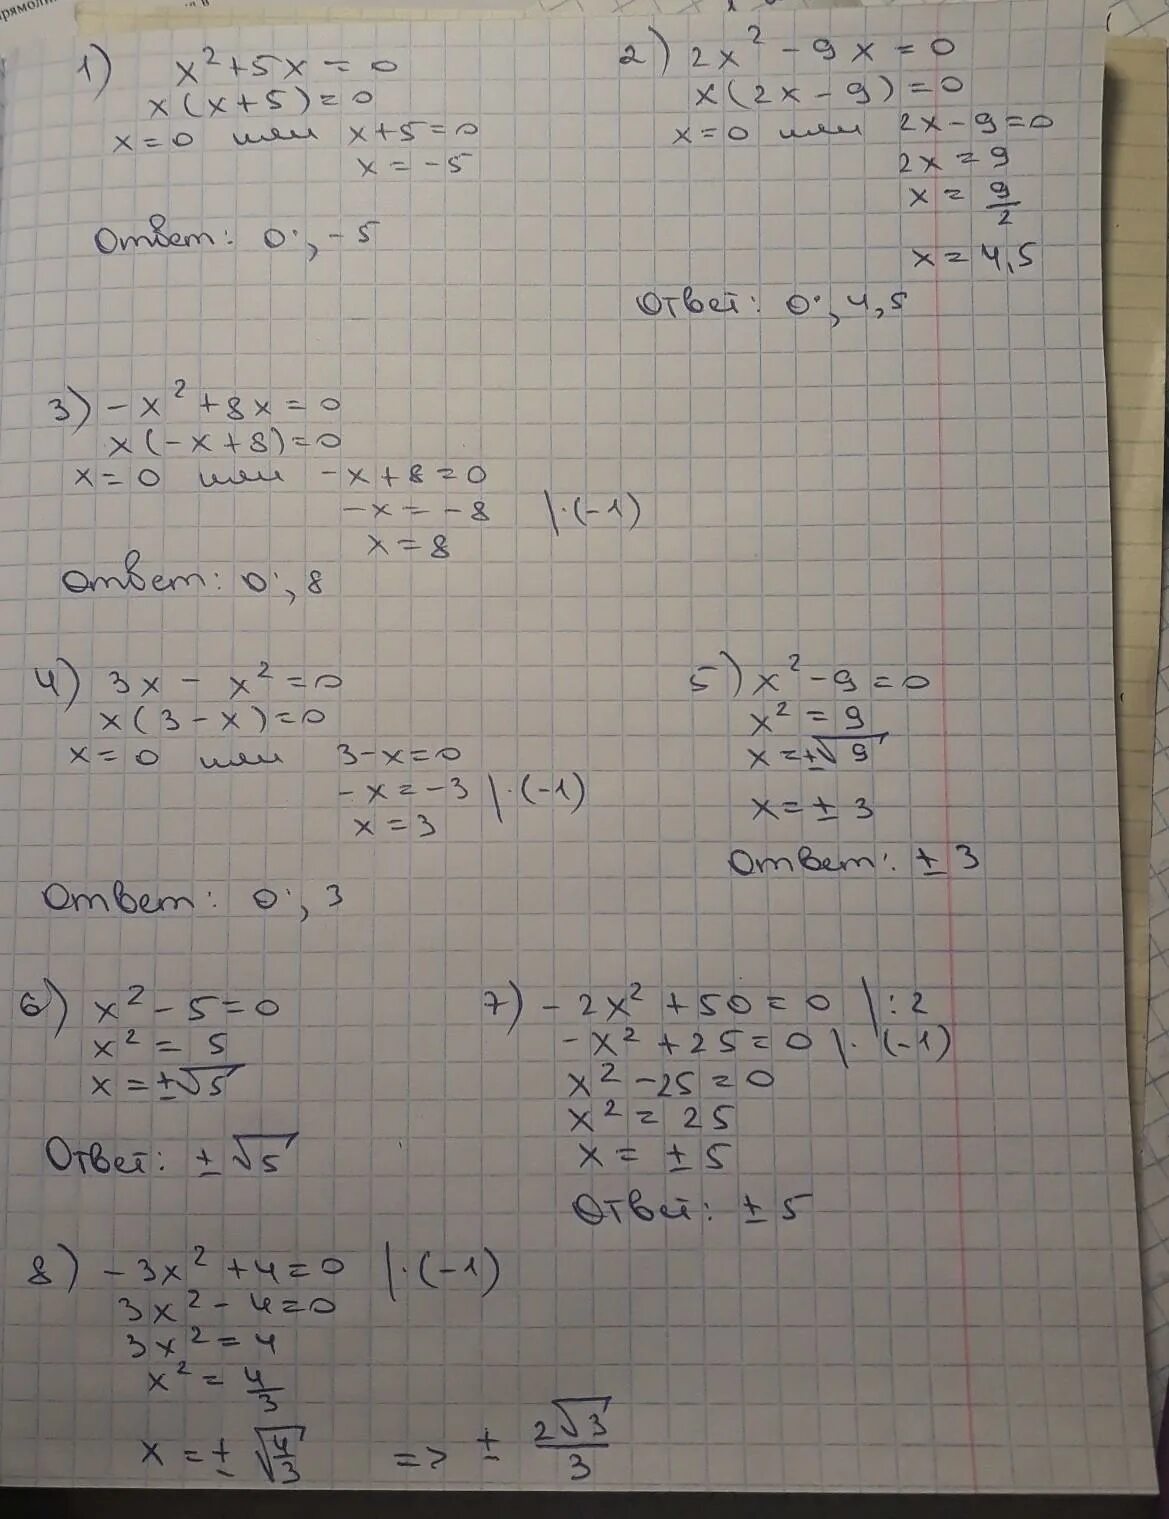 1) x² + 5x = 0
x(x + 5) = 0
x = 0 или x + 5 = 0
x = -5
Ответ: 0; -5
2) 2x² - 9x = 0
x(2x - 9) = 0
x = 0 или 2x - 9 = 0
2x = 9
x = 9/2
x = 4,5
Ответ: 0; 4,5
3) -x² + 8x = 0
x(-x + 8) = 0
x = 0 или -x + 8 = 0
-x = -8 |·(-1)
x = 8
Ответ: 0; 8
4) 3x - x² = 0
x(3 - x) = 0
x = 0 или 3 - x = 0
-x = -3 |·(-1)
x = 3
Ответ: 0; 3
5) x² - 9 = 0
x² = 9
x = ±√9
x = ± 3
Ответ: ± 3
6) x² - 5 = 0
x² = 5
x = ±√5
Ответ: ± √5
7) -2x² + 50 = 0 |:2
-x² + 25 = 0 |·(-1)
x² - 25 = 0
x² = 25
x = ± 5
Ответ: ± 5
8) -3x² + 4 = 0 |·(-1)
3x² - 4 = 0
3x² = 4
x² = 4/3
x = ± √(4/3) => ± 2√3/3